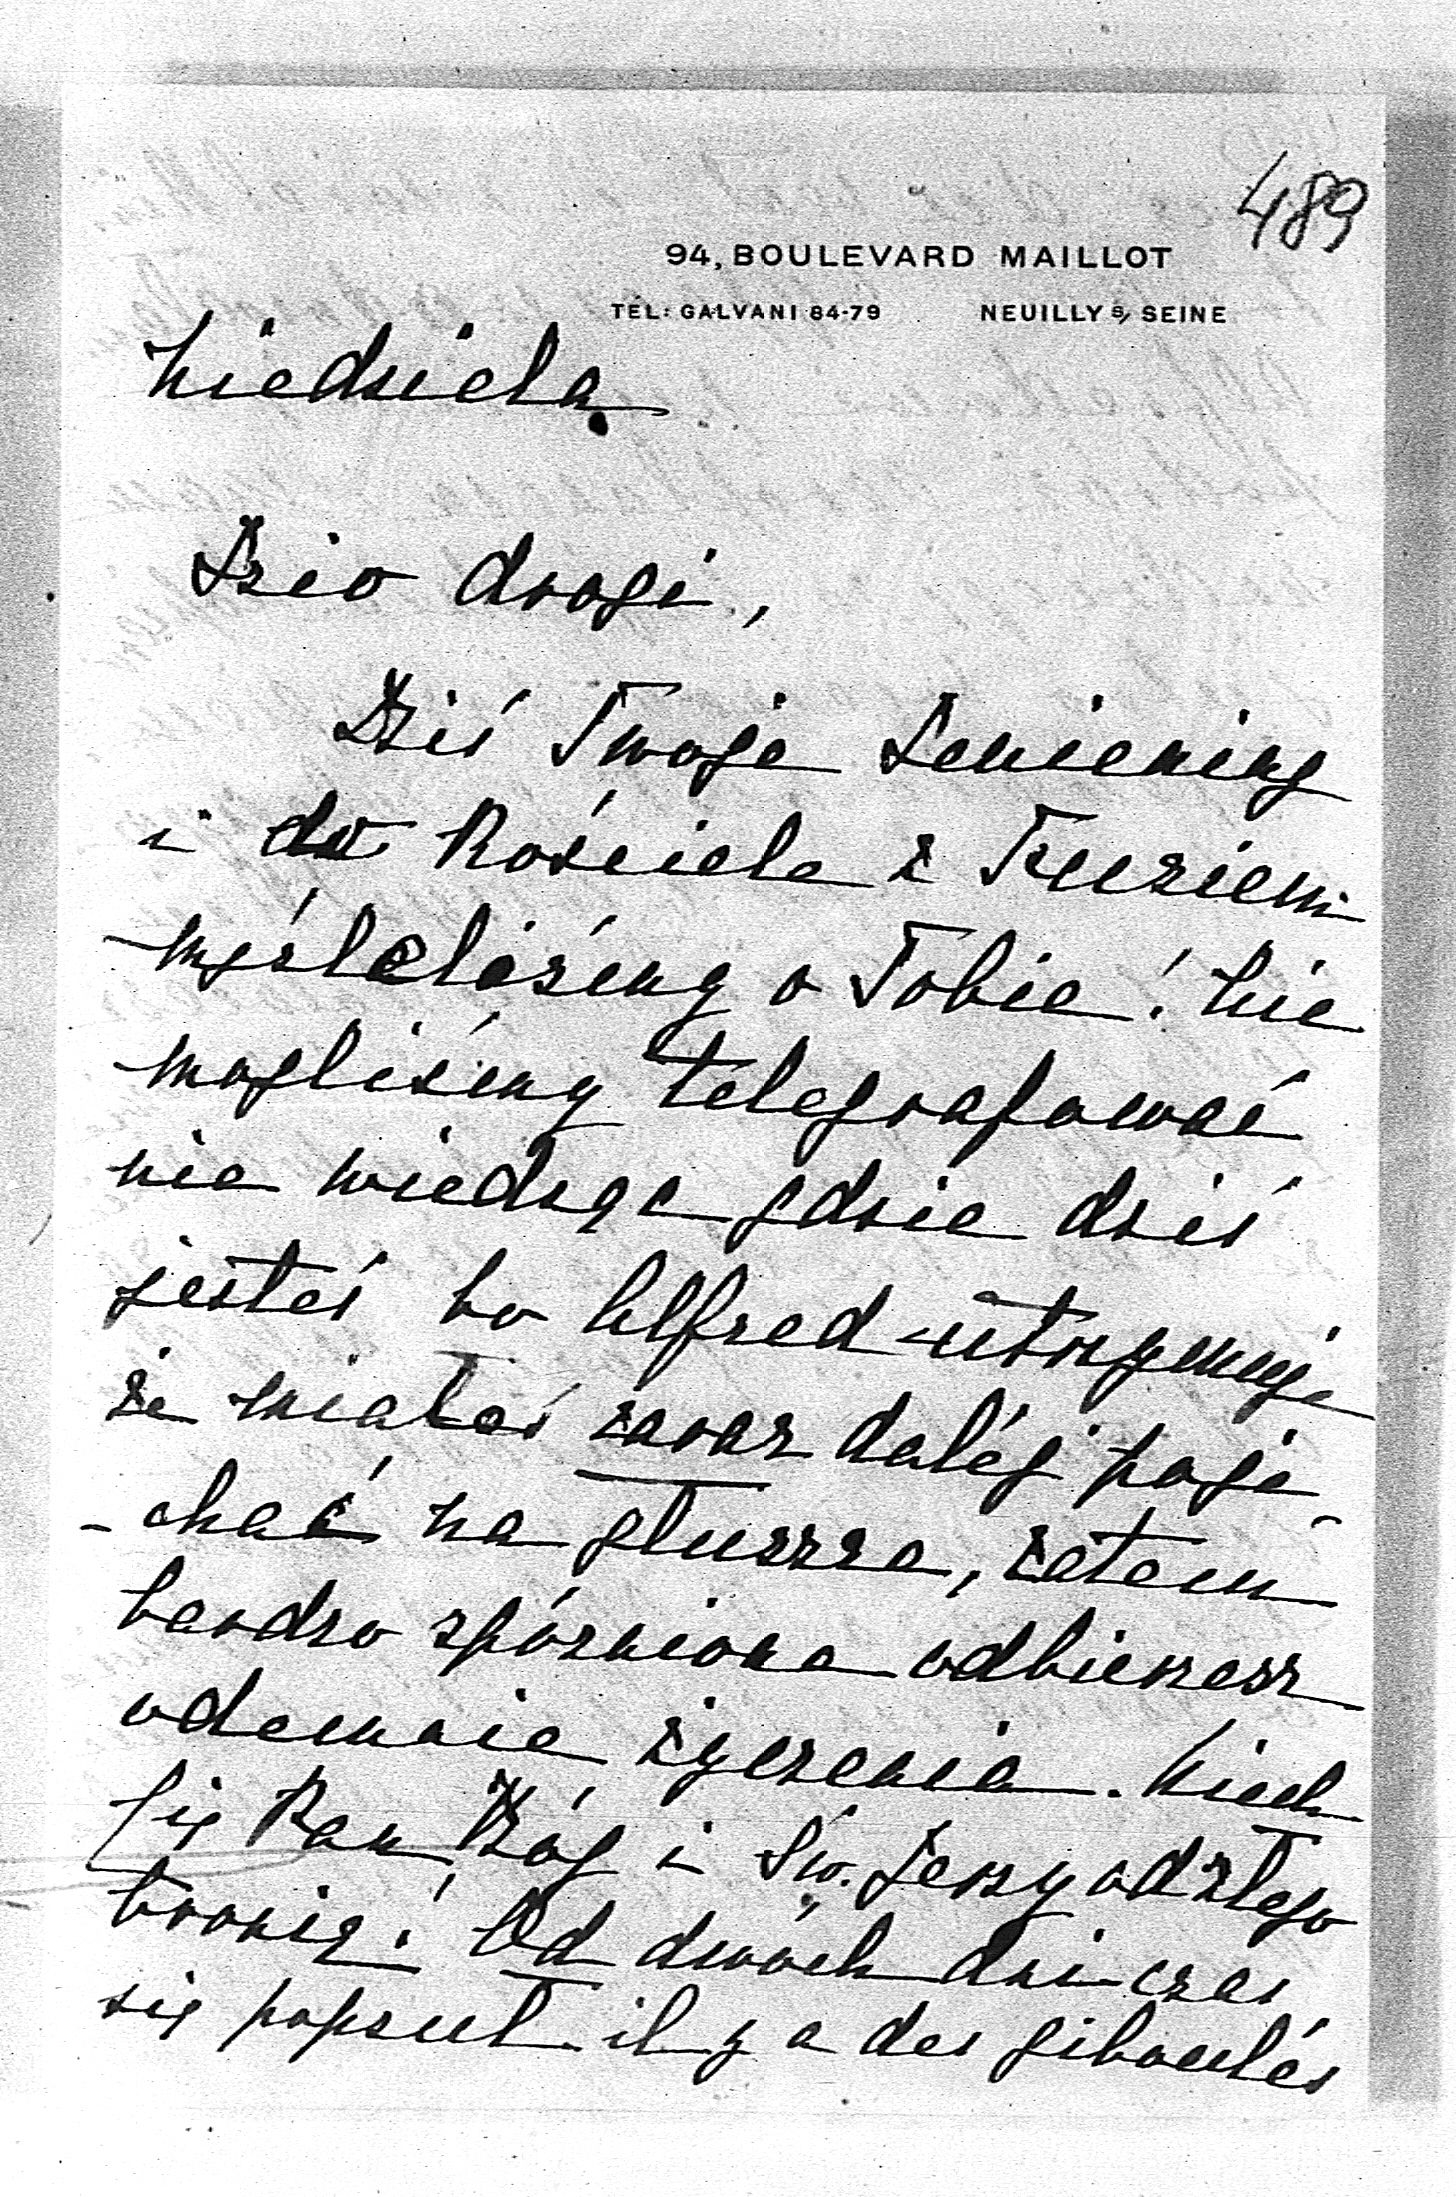 489
94, BOULEVARD MAILLOT
TÉL: GALVANI 84-79 NEUILLY S/ SEINE
Niedziela
Dzio drogi,
Dziś Twoje Imieniny
i do Kościoła z
myśleliśmy o Tobie! Nie
mogliśmy telegrafować
nie wiedząc gdzie dziś
jesteś bo Alfred utrzymuje
że miałeś zaraz daléj poje
-chać na głuszce, zatem
bardzo spóźnione odbierzesz
odemnie życzenia. Niech
Cię Pan Bóg i Św. Jerzy od złego
bronią! Od dwóch dni czas
się popsuł il y a des giboulés